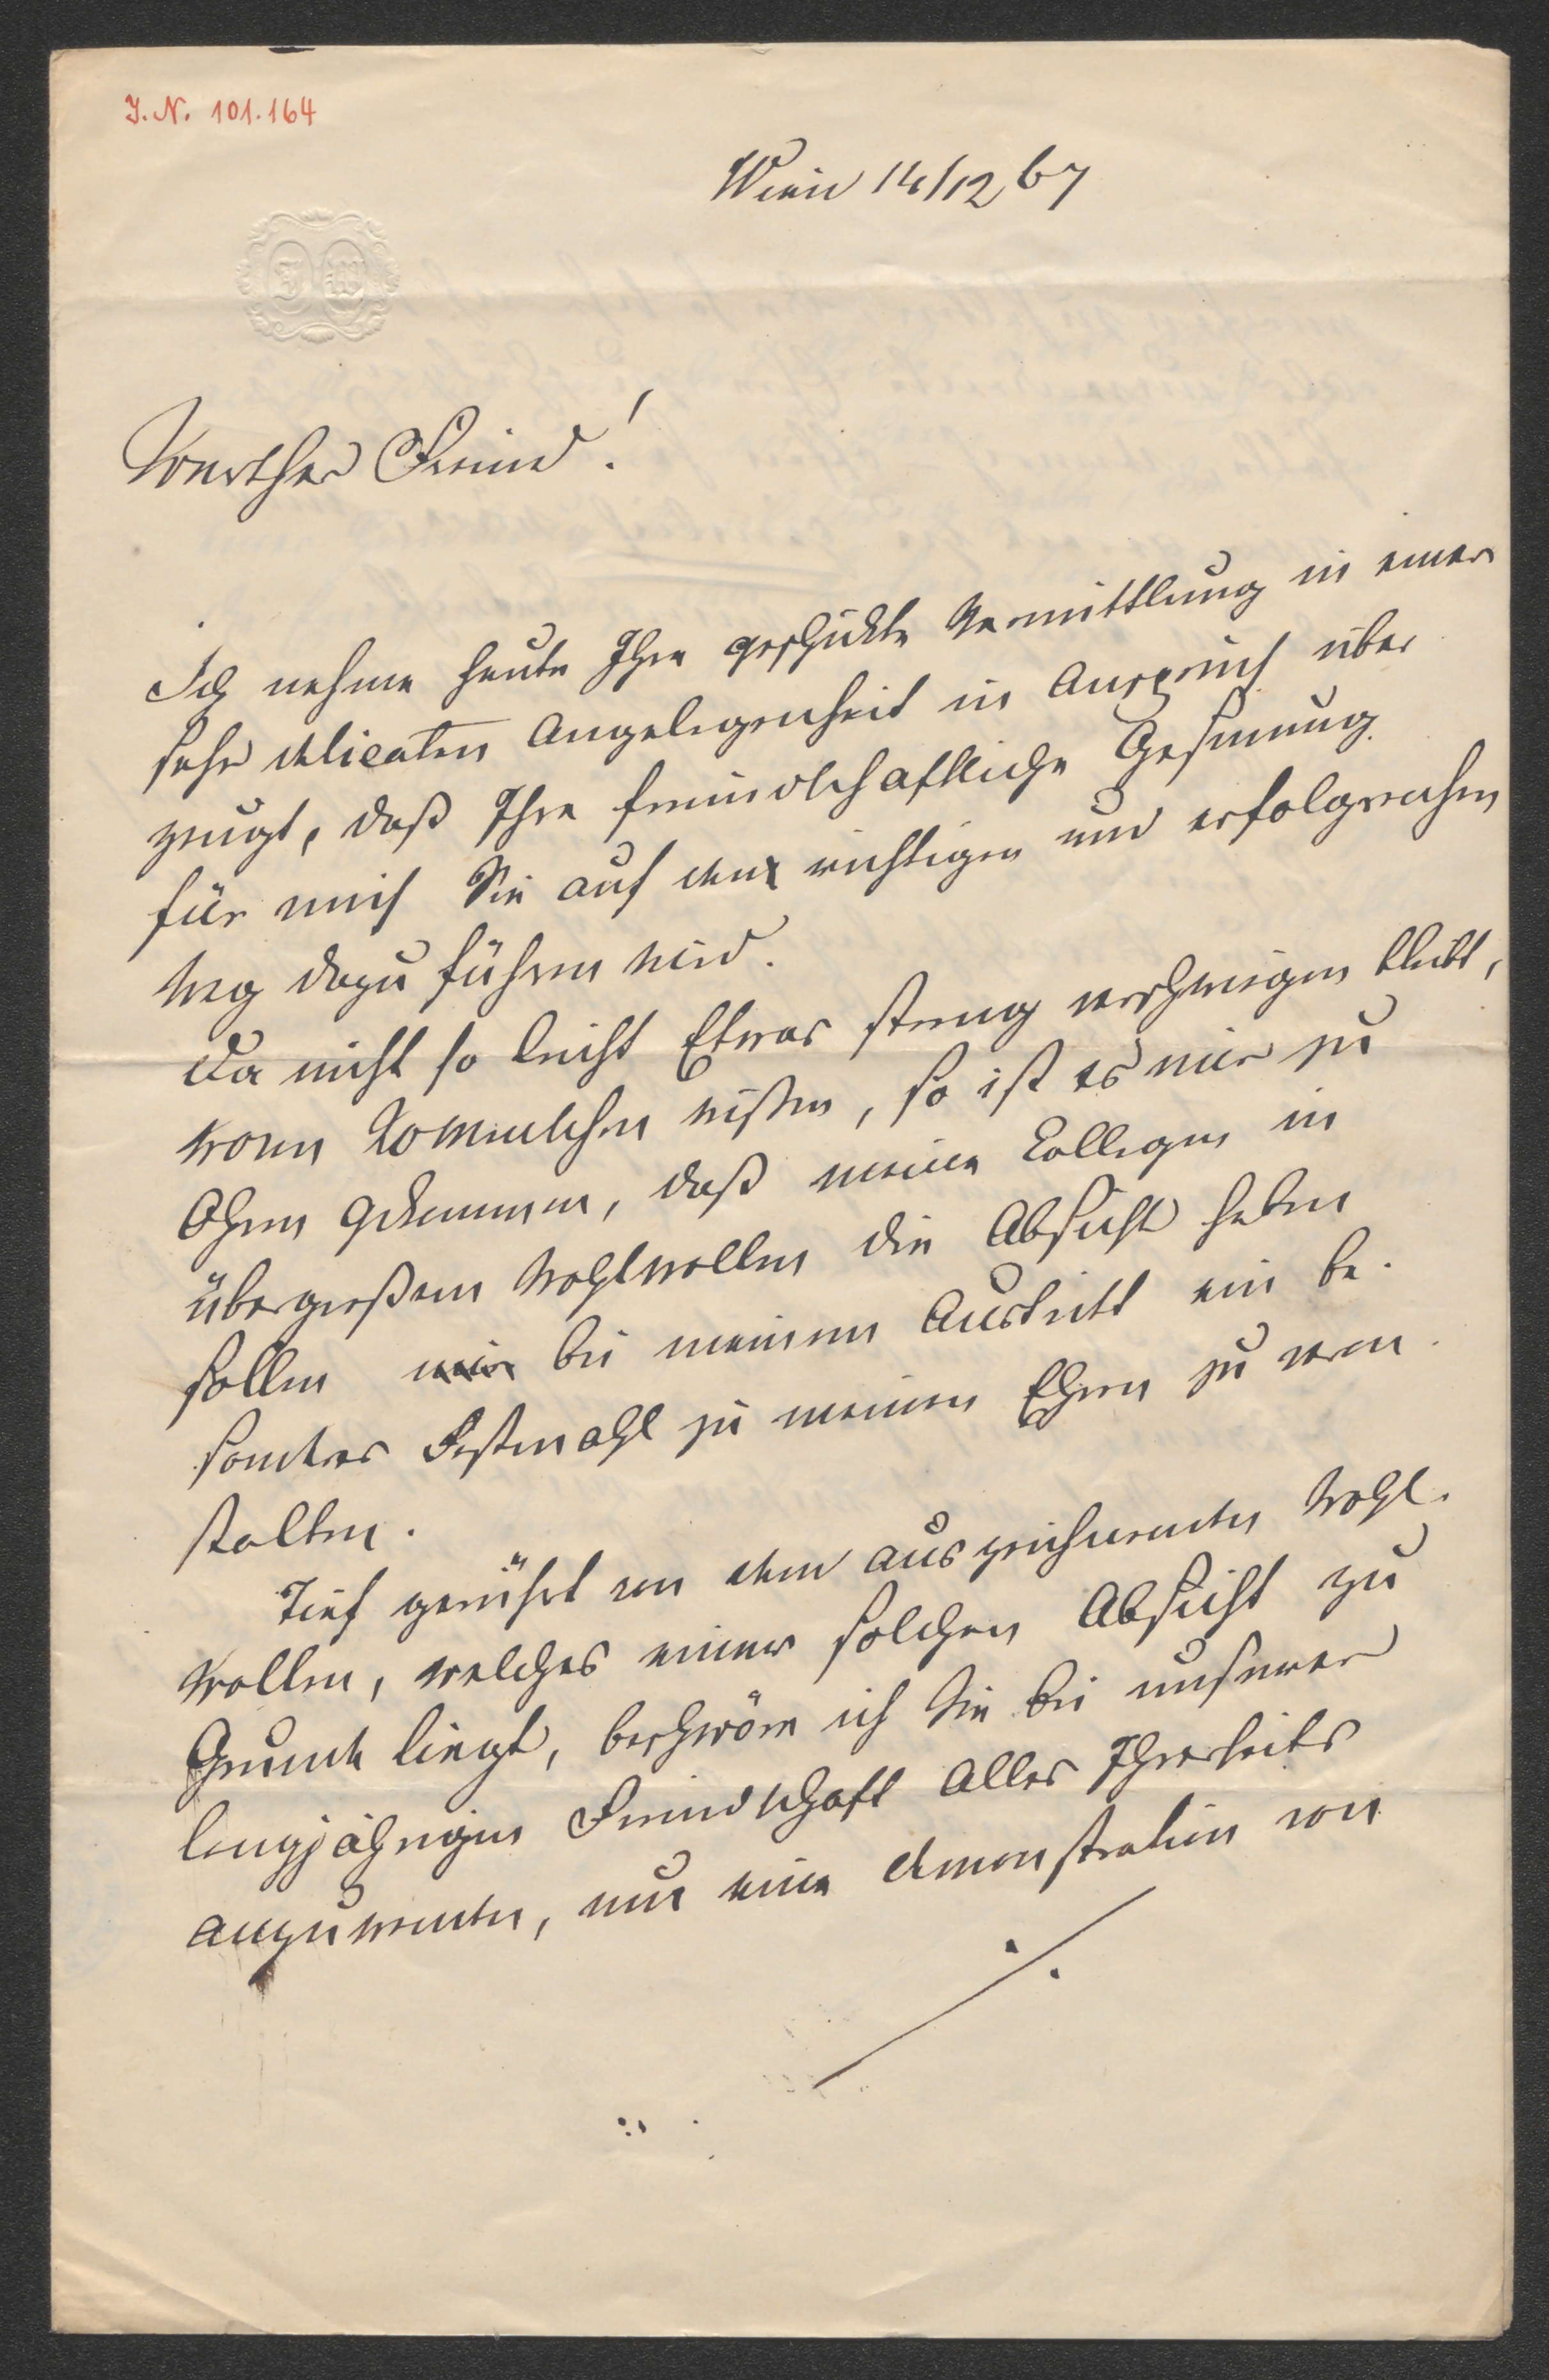 I. N. 101.164
Wien 14/12 67
J W
Werther Freund!
Ich nehme heute Ihre geschickte Vermittlung in einer
sehr delicaten Angelegenheit in Anspruch über
zeugt, daß Ihre freundschaftliche Gesinnung
für mich Sie auf den richtigen und erfolgreichen
Weg dazu führen wird.
Da nicht so leicht Etwas streng verschwiegen bleibt,
wovon wissen, so ist es mir zu
Ohren gekommen, daß meine Collegen in
übergroßem Wohlwollen die Absicht haben
sollen bei meinem Austritt ein be-
sonderes Festmahl zu meinen Ehren zu veran-
stalten.
Tief gerührt von dem auszeichnenden Wohl-
wollen, welches einer solchen Absicht zu
Grunde liegt, beschwöre ich Sie bei unserer
langjährigen Freundschaft Alles Ihrerseits
anzuwenden, um eine demonstration von
./.